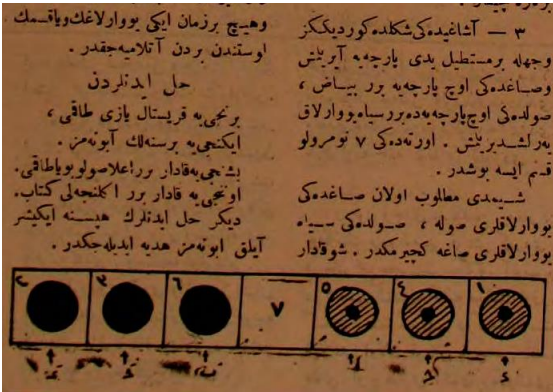 ٣ — آشاغیده‌كی شكلده كوردیككز
وجهله برمستطیل یدی پارچه‌یه آیریلمش
وصاغده‌كی اوچ پارچه‌یه برر بیاض ،
صولده‌كی اوچ پارچه‌یه‌ده برر سیاه یووارلاق
یه‌رلشدیریلمش . اورته‌ده‌كی ٧ نومرولو
قسم ایسه بوشدر .
شیمدی مطلوب اولان صاغده‌كی
یووارلاقلری صوله ، صولده‌كی سیاه
یووارلاقلری صاغه كچیرمكدر . شوقدار
وهیچ برزمان ایكی یووارلاغك ویاقسمك
اوستندن بردن آتلامیه‌جقدر .
حل ایدنلردن
برنجی‌یه قریستال یازی طاقی ،
ایكنجی‌یه برسنه‌لك آبونه‌مز .
بشنجی‌یه‌قادار برر اعلا صولوبویاطاقی .
اوننجی‌یه قادار برر اكلنجه‌لی كتاب .
دیكر حل ایدنلرك هپسنه ایكیشر
آیلق ابونه‌مز هدیه ایدیله‌جكدر .
٢ ٣ ٦ ٧ ٥ ٤ ١